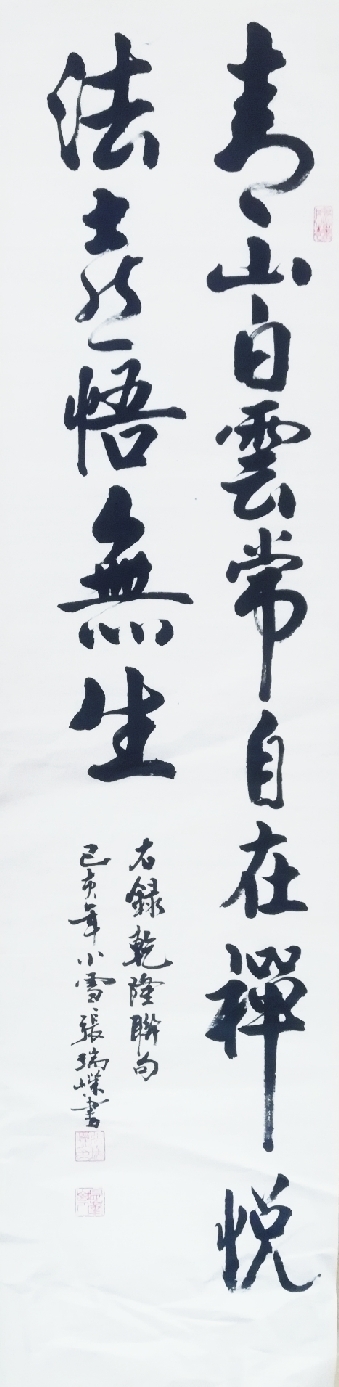 青山白雲常自在禪悦
法喜悟無生
右録乾隆聯句
己亥年小雪張瑞書